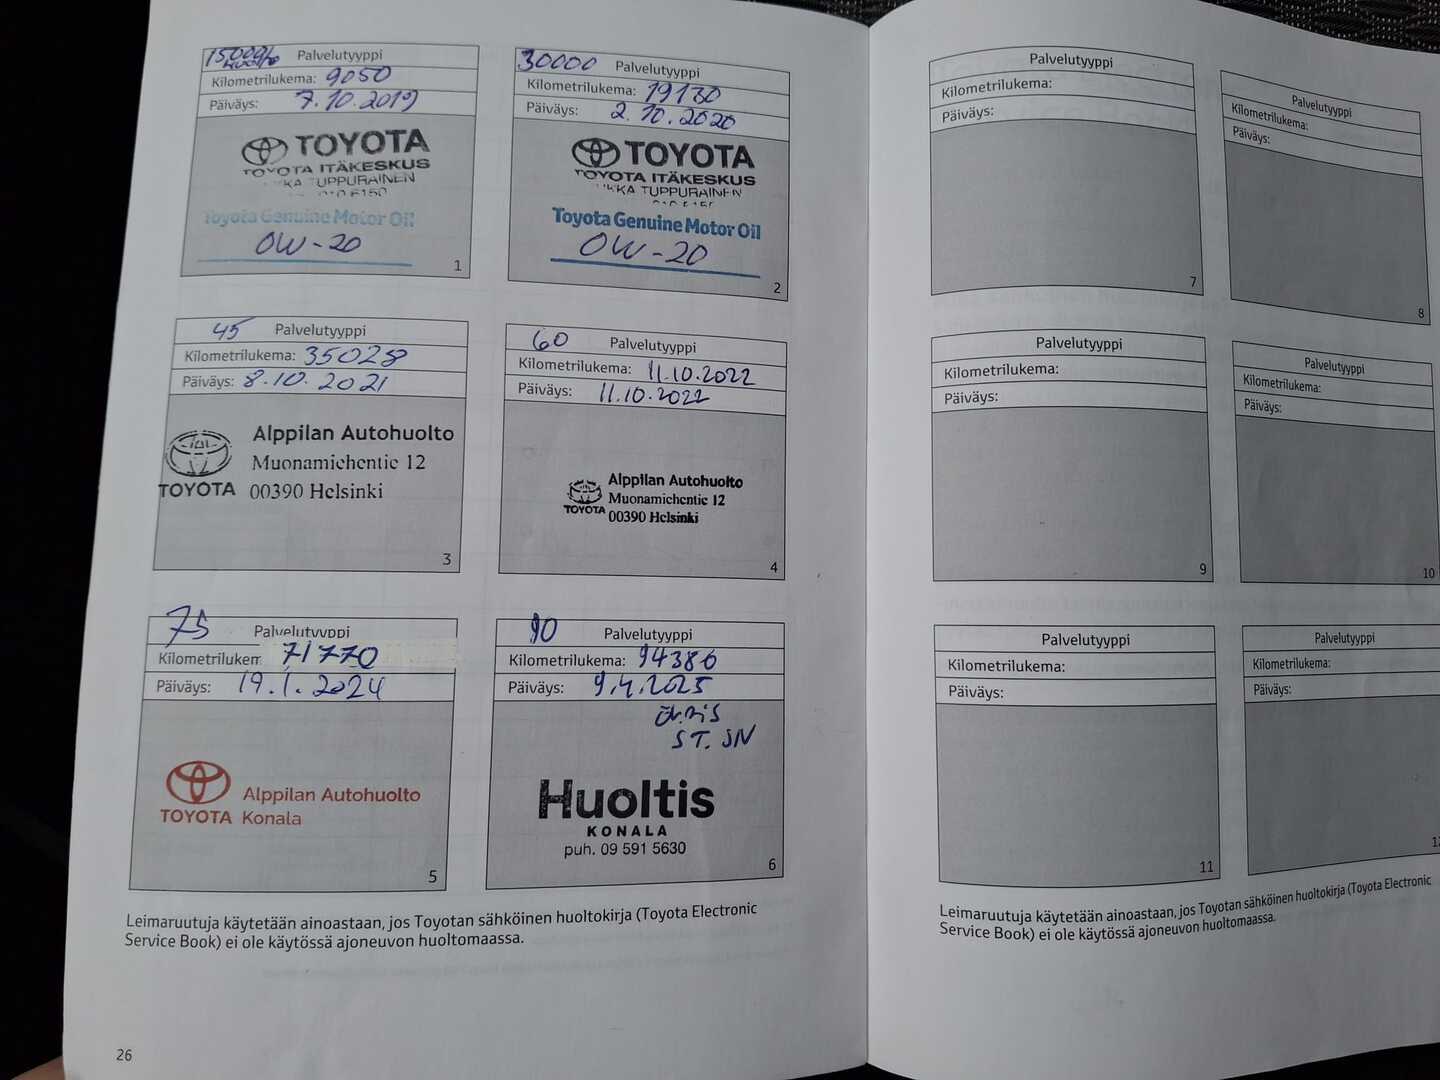 15000/ huolto Palvelutyyppi
Kilometrilukema: 9050
Päiväys: 7.10.2019
TOYOTA
TOYOTA ITÄKESKUS
KKA TUPPURAINEN
Toyota Genuine Motor Oil
0W-20
1
30000 Palvelutyyppi
Kilometrilukema: 19130
Päiväys: 2.10.2020
TOYOTA
TOYOTA ITÄKESKUS
KKA TUPPURAINEN
Toyota Genuine Motor Oil
0W-20
2
45 Palvelutyyppi
Kilometrilukema: 35028
Päiväys: 8.10.2021
Alppilan Autohuolto
Muonamiehentie 12
TOYOTA 00390 Helsinki
3
60 Palvelutyyppi
Kilometrilukema: 11.10.2022
Päiväys: 11.10.2022
Alppilan Autohuolto
Muonamiehentie 12
TOYOTA 00390 Helsinki
4
75 Palvelutyyppi
Kilometrilukem 71770
Päiväys: 19.1.2024
Alppilan Autohuolto
TOYOTA Konala
5
90 Palvelutyyppi
Kilometrilukema: 94386
Päiväys: 9.4.2025
ST. JN
Huoltis
KONALA
puh. 09 591 5630
6
Leimaruutuja käytetään ainoastaan, jos Toyotan sähköinen huoltokirja (Toyota Electronic
Service Book) ei ole käytössä ajoneuvon huoltomaassa.
26
Palvelutyyppi
Kilometrilukema:
Päiväys:
7
Palvelutyyppi
Kilometrilukema:
Päiväys:
8
Palvelutyyppi
Kilometrilukema:
Päiväys:
9
Palvelutyyppi
Kilometrilukema:
Päiväys:
10
Palvelutyyppi
Kilometrilukema:
Päiväys:
11
Palvelutyyppi
Kilometrilukema:
Päiväys:
12
Leimaruutuja käytetään ainoastaan, jos Toyotan sähköinen huoltokirja (Toyota Electronic
Service Book) ei ole käytössä ajoneuvon huoltomaassa.